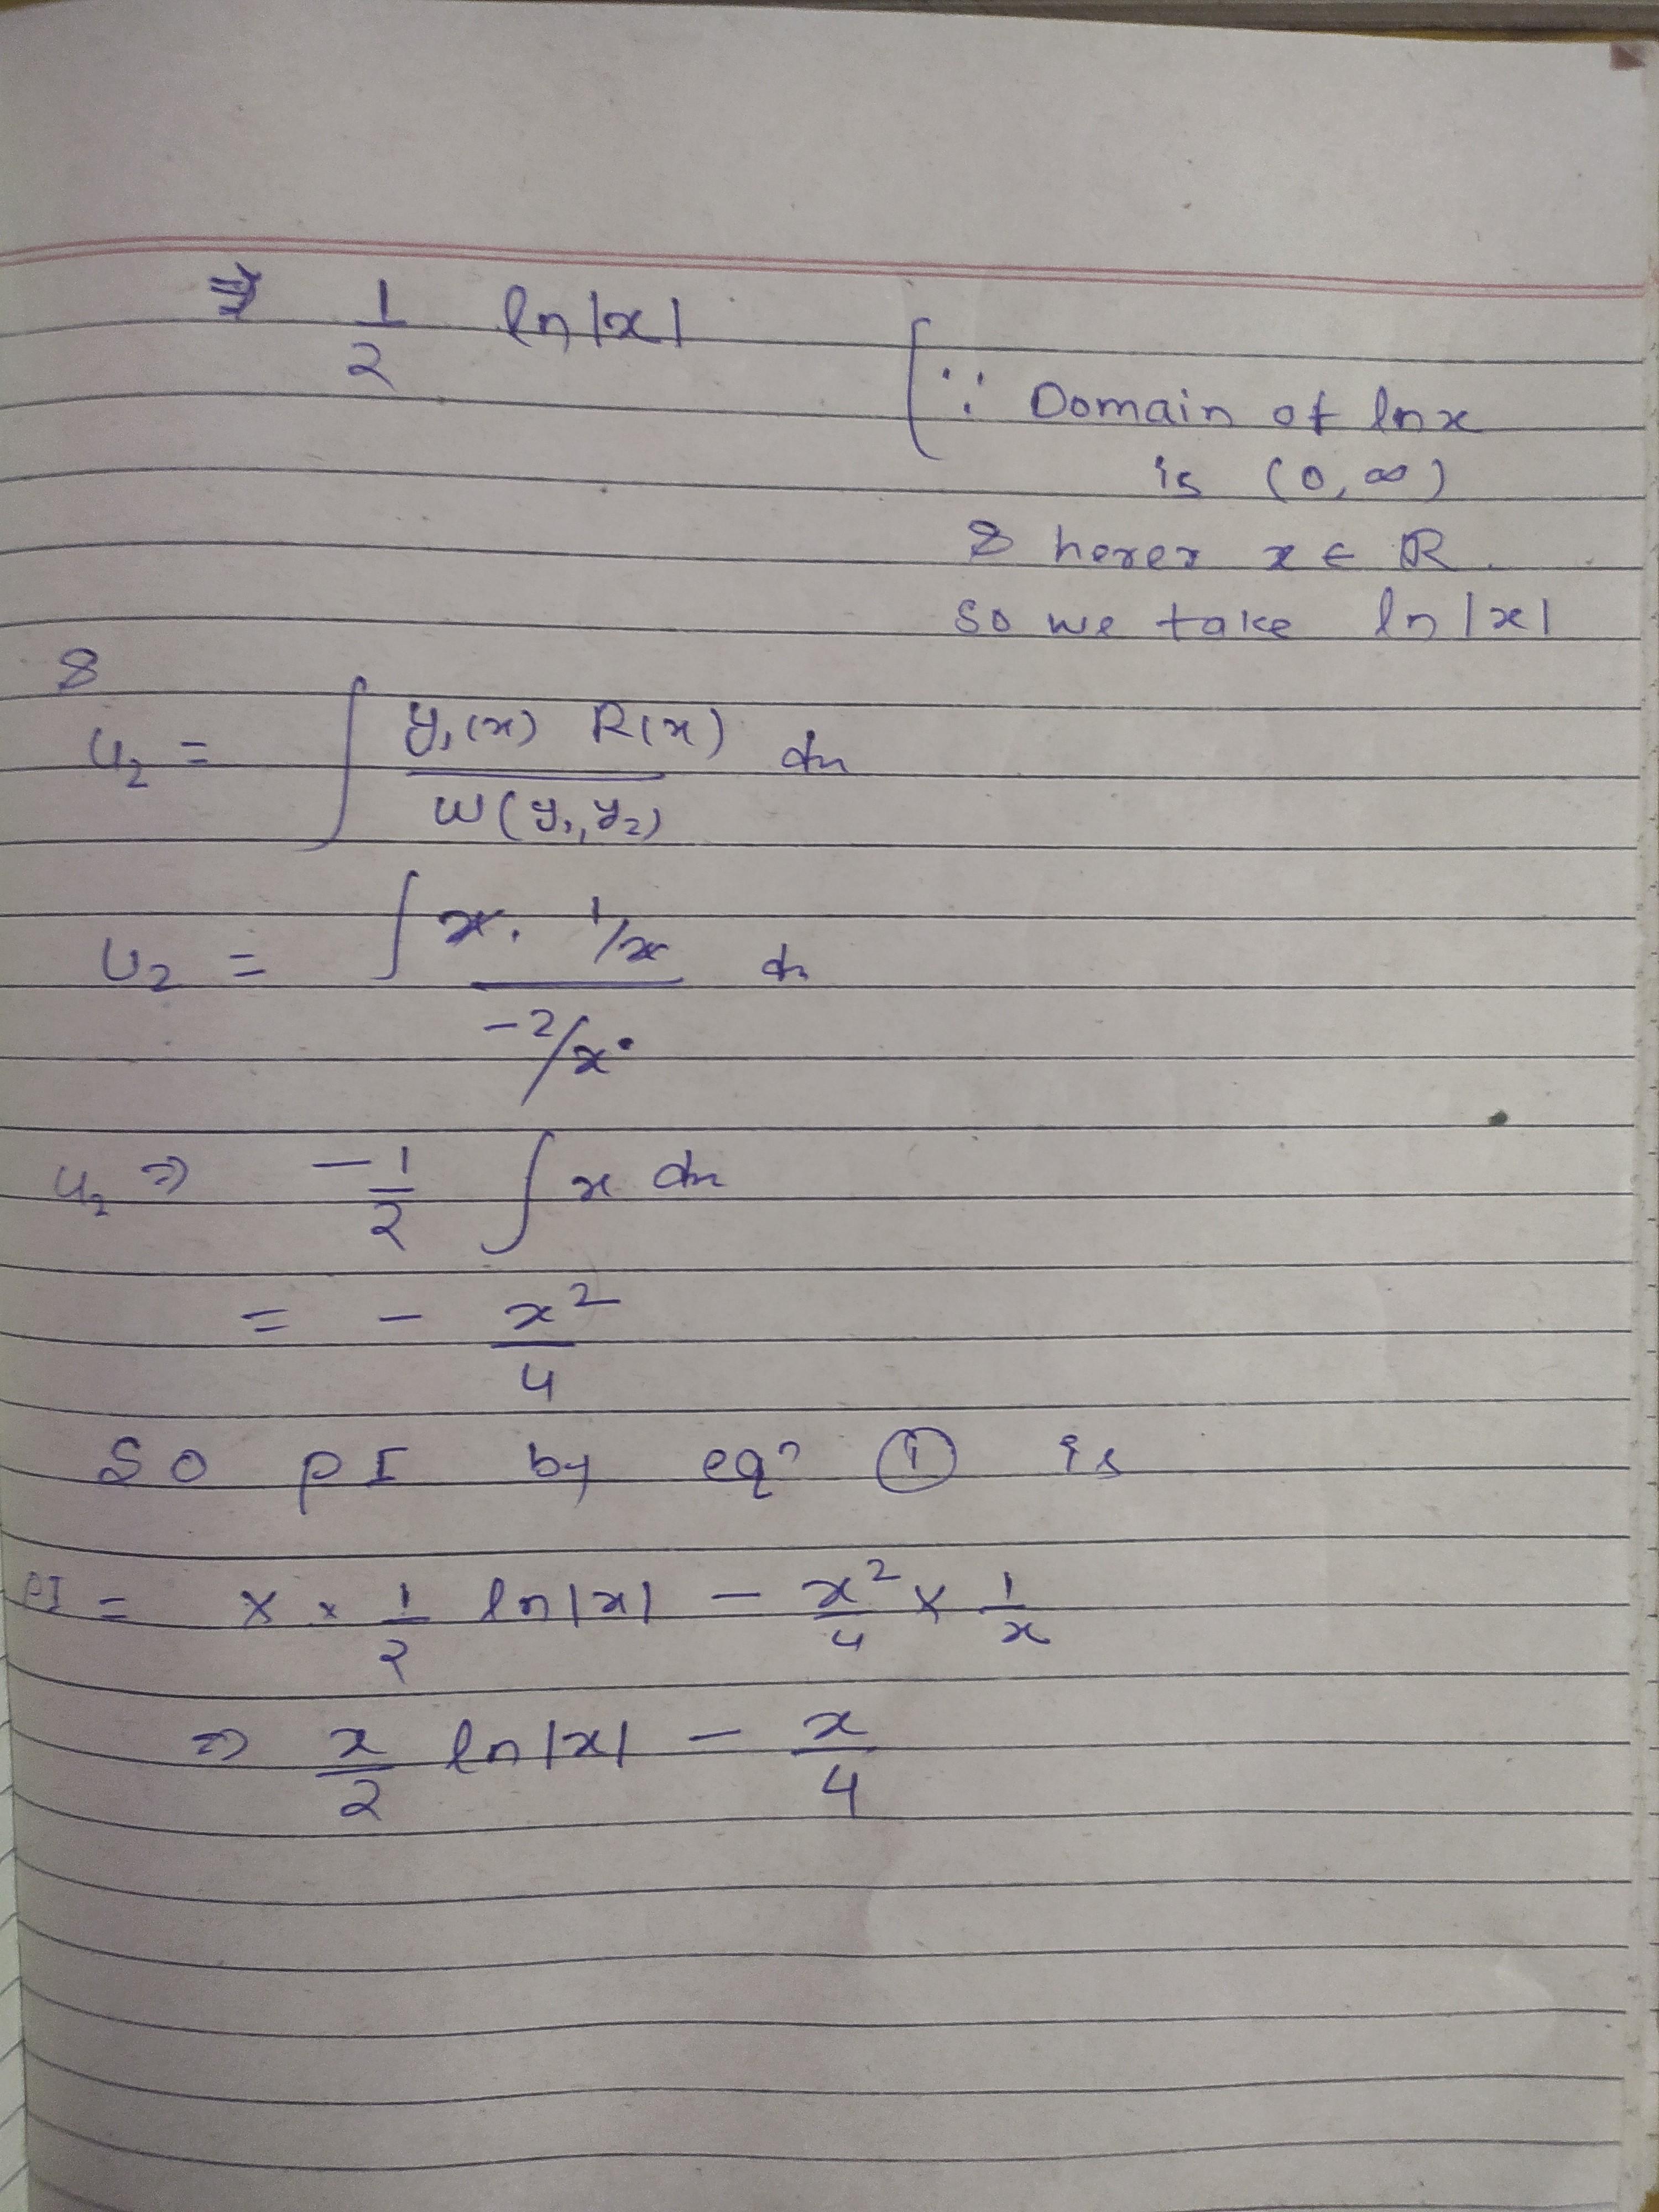 ⇒ 1/2 ln|x|
[∵ Domain of lnx
is (0, ∞)
& herex x ∈ ℝ.
so we take ln|x|
&
u₂ = ∫ y₁(x) R(x) / W(y₁, y₂) dx
u₂ = ∫ x. 1/x / -2/x dx
u₂ ⇒ -1/2 ∫ x dx
= - x²/4
So PI by eqⁿ ① is
PI = x × 1/2 ln|x| - x²/4 × 1/x
⇒ x/2 ln|x| - x/4